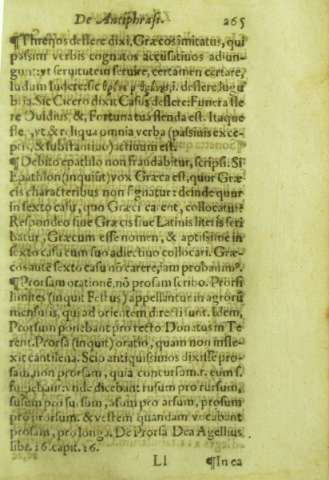 De Antiphrasi. 265
¶Threnos deflere dixi. Græcos imitatus, qui
passim verbis cognatos accusatiuos adiun-
gunt: vt seruitutem seruire, certamen certare,
ludum ludere: sic deflere lugu
bria. Sic Cicero dixit Casus deflere: Funera fle
re Ouidius, &, Fortunatua flenda est. Itaque
fle, vt & reliqua omnia verba (passiuis exce-
ptis, & substantiuo) actiuum est.
¶Debito epathlo non fraudabitur, scripsi. Si
Epathlon (inquiūt) vox Græca est, quur Græ-
cis characteribus non signatur: deinde quur
in sexto casu, quo Græci carent, collocatur?
Respondeo siue Græcis siue Latinis literis scri
batur, Græcum esse nomen, & aptissime in
sexto casu cum suo adiectiuo collocari. Græ-
cos autē sexto casu nō carere, iam probauim⁹.
¶Prorsam orationē, nō prosam scribo. Prorsi
limites (inquit Festus) appellantur in agrorū
mensuris, qui ad orientem directi sunt. Idem,
Prorsum ponebant pro recto. Donatus in Te
rent. Prorsa (inquit) oratio, quam non infle-
xit cantilena. Scio antiquissimos dixisse pro-
sam, non prorsam, quia concursam .r. cum s.
fugiebant: vnde dicebant rusum pro rursum,
susum pro sursum, asum pro arsum, prosum
pro prorsum. & vestem quandam vocabant
prosam, pro longa. De Prorsa Dea Agellius,
libr. 16. capit. 16.
Ll ¶In ea